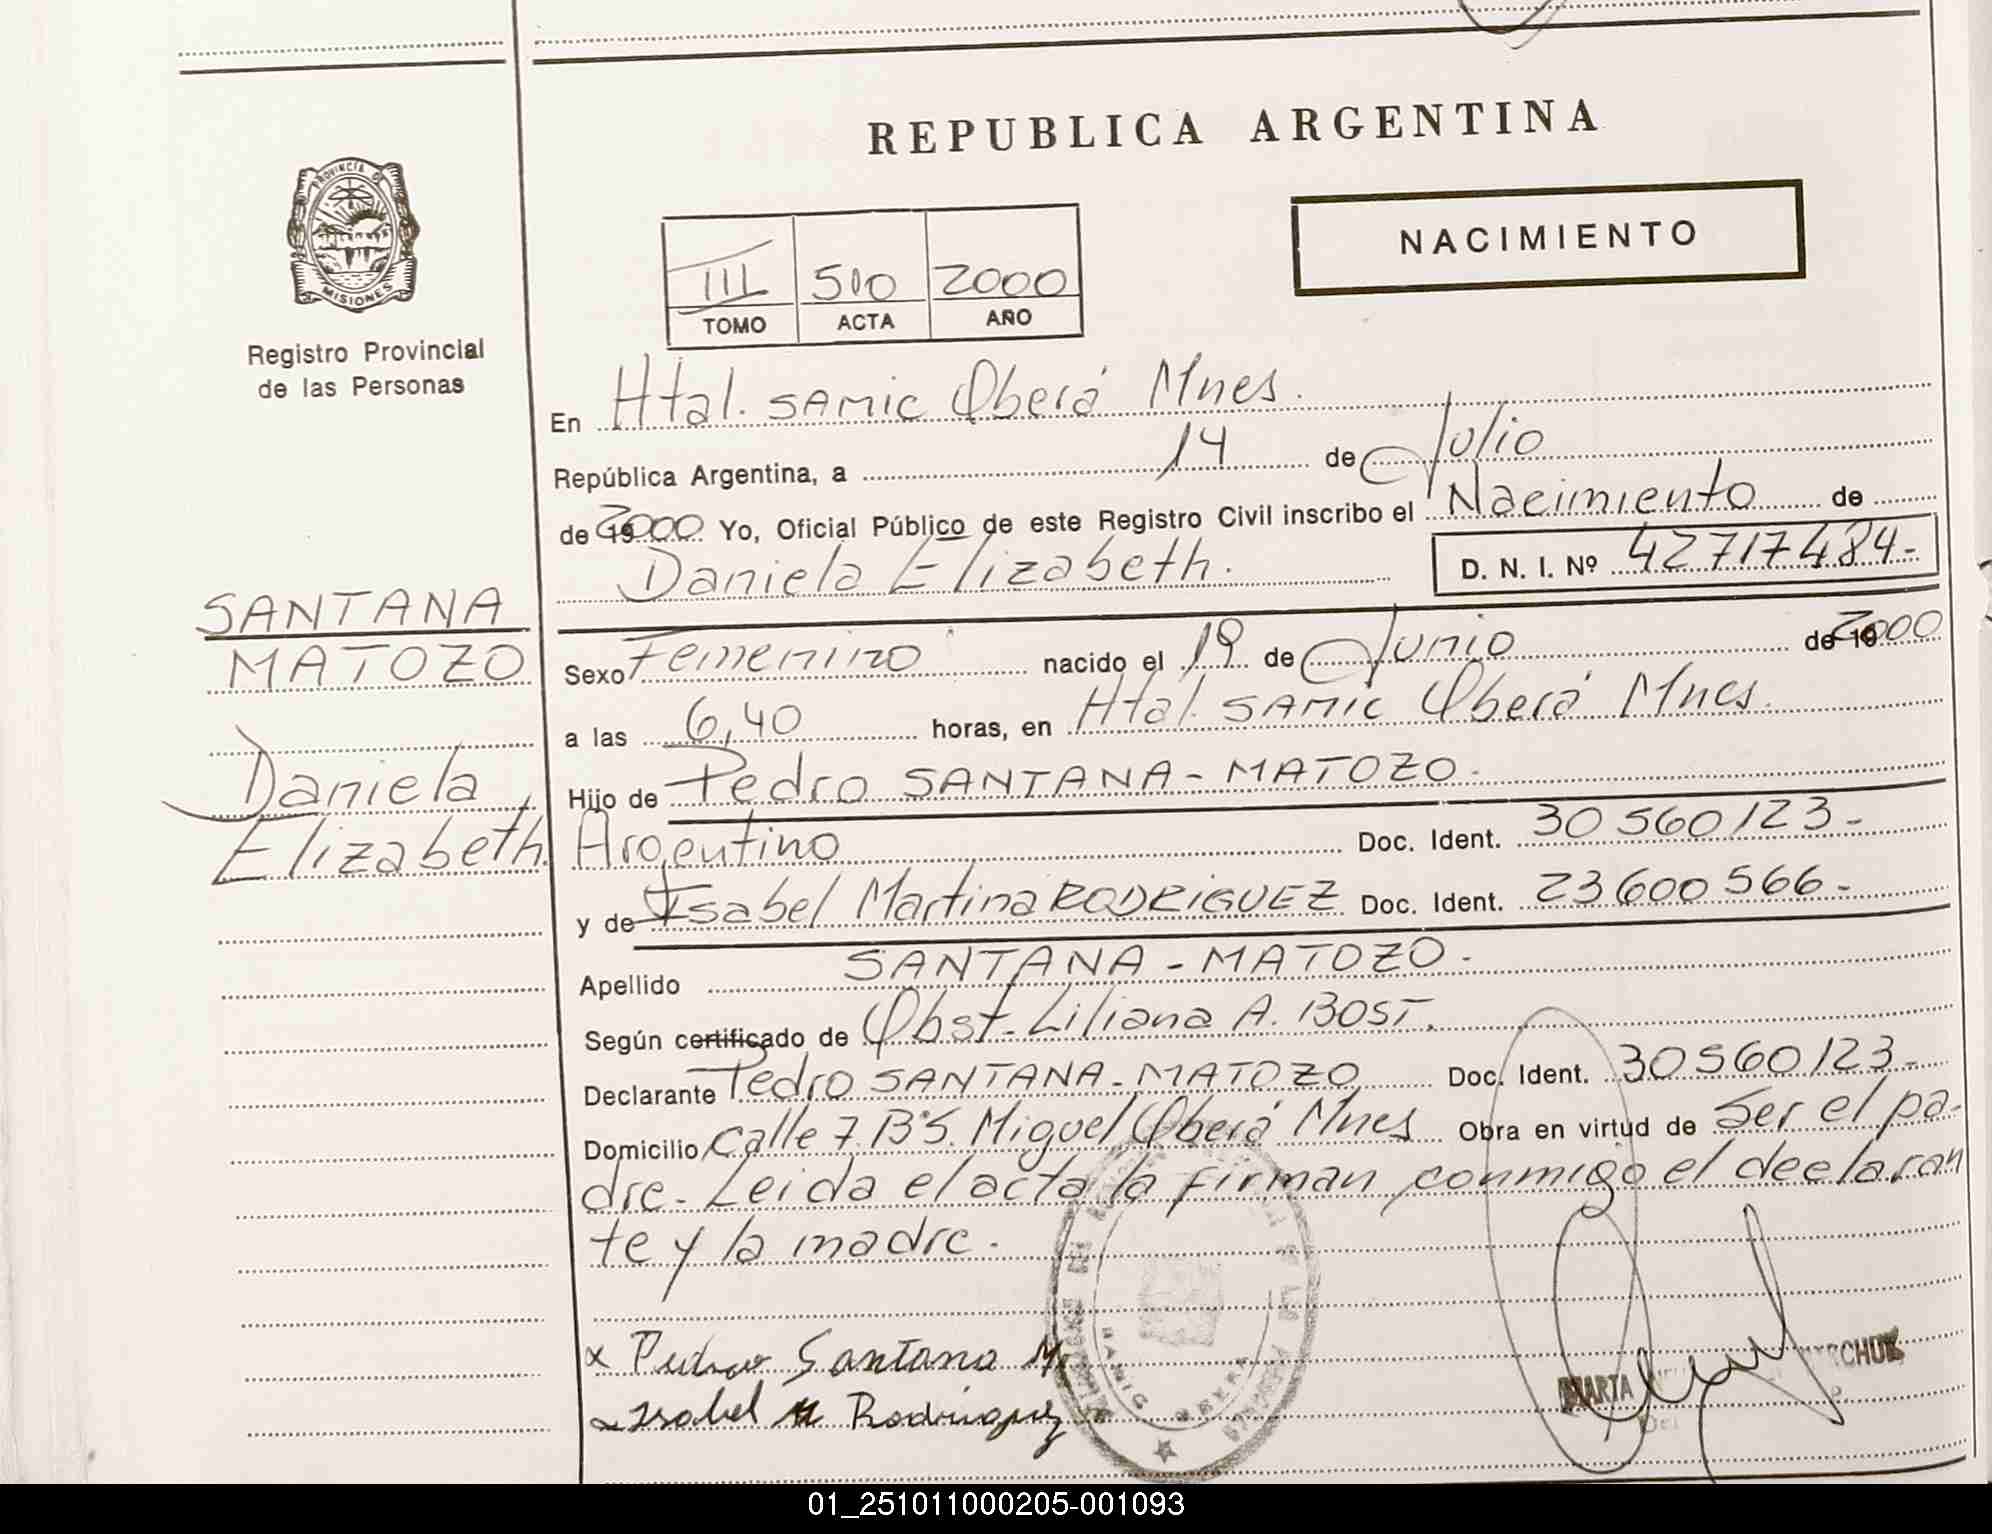 REPUBLICA ARGENTINA
PROVINCIA DE
MISIONES
Registro Provincial
de las Personas
NACIMIENTO
III 510 2000
TOMO ACTA AÑO
En Htal. SAMIC Oberá Mnes.
República Argentina, a 14 de Julio
de 2000 Yo, Oficial Público de este Registro Civil inscribo el Nacimiento de
Daniela Elizabeth. D. N. I. Nº 42717484-
SANTANA
MATOZO
Daniela
Elizabeth.
Sexo Femenino nacido el 19 de Junio de 2000
a las 6,40 horas, en Htal. SAMIC Oberá Mnes.
Hijo de Pedro SANTANA - MATOZO.
Argentino Doc. Ident. 30560123-
y de Isabel Martina RODRIGUEZ Doc. Ident. 23600566-
Apellido SANTANA - MATOZO.
Según certificado de Obst. Liliana A. BOST.
Declarante Pedro SANTANA - MATOZO Doc. Ident. 30560123-
Domicilio Calle 7. Bº S. Miguel Oberá Mnes Obra en virtud de Ser el pa-
dre. Leida el acta la firman conmigo el declaran
te y la madre.
x Pedro Santana M
x Isabel M Rodriguez
MARTA
01_251011000205-001093